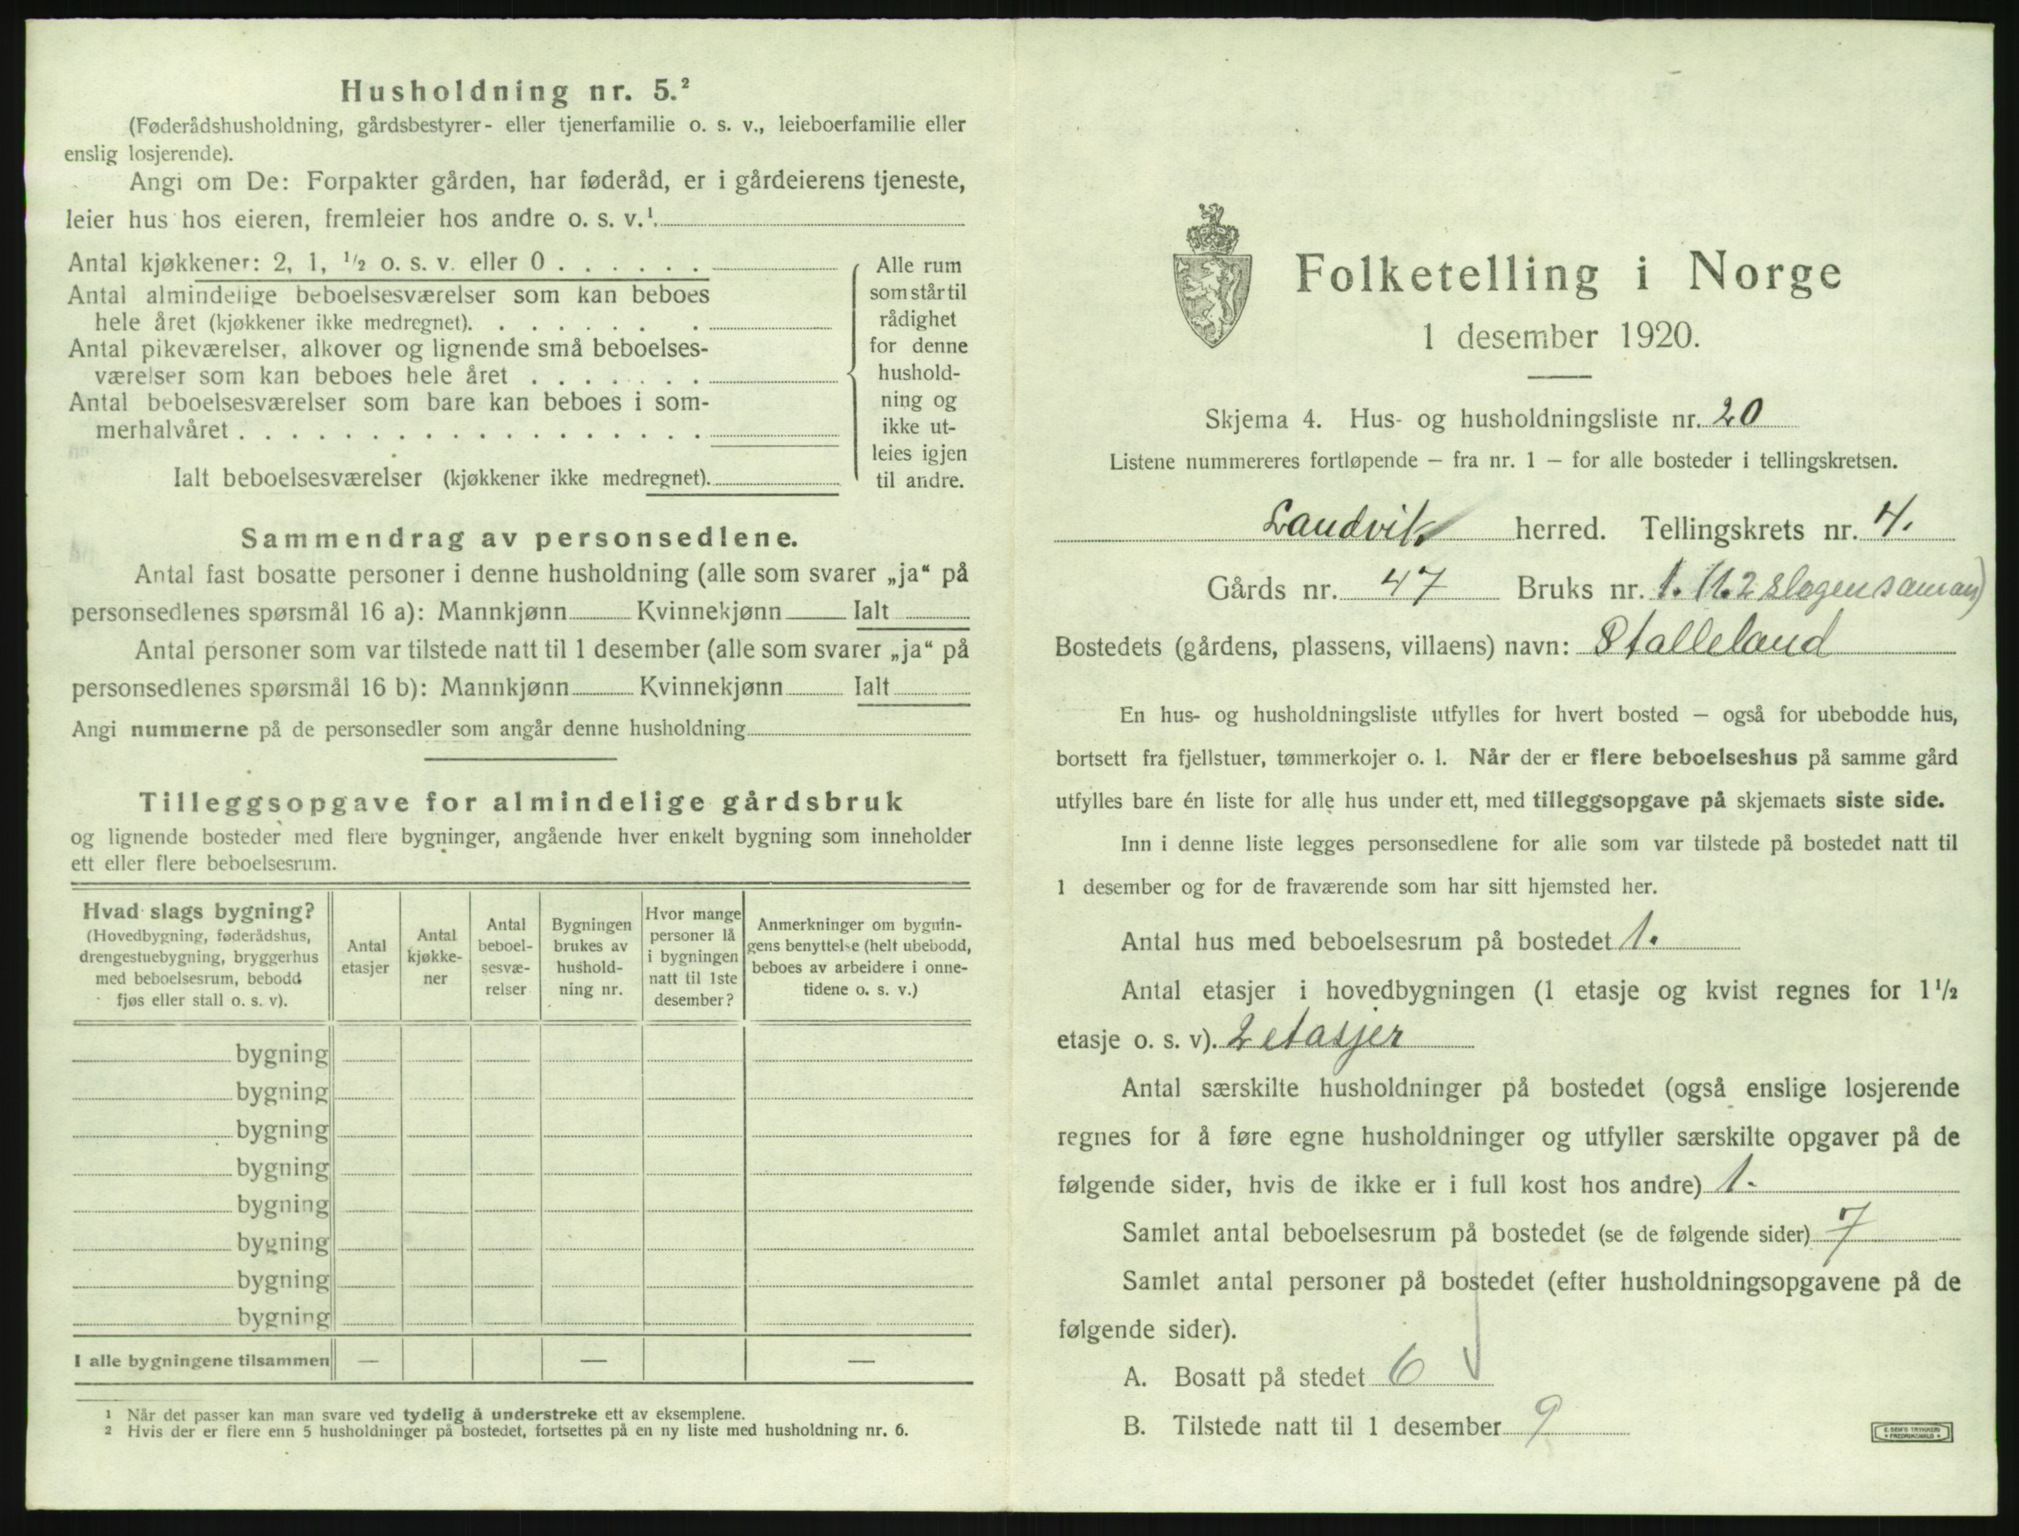 Husholdning nr. 5.²
(Føderådshusholdning, gårdsbestyrer- eller tjenerfamilie o. s. v., leieboerfamilie eller
enslig losjerende).
Angi om De: Forpakter gården, har føderåd, er i gårdeierens tjeneste,
leier hus hos eieren, fremleier hos andre o. s. v.¹
Antal kjøkkener: 2, 1, ½ o. s. v. eller 0 . . . . . .
Antal almindelige beboelsesværelser som kan beboes
hele året (kjøkkener ikke medregnet). . . . . . . .
Antal pikeværelser, alkover og lignende små beboelses-
værelser som kan beboes hele året . . . . . . .
Antal beboelsesværelser som bare kan beboes i som-
merhalvåret . . . . . . . . . . . . . . . . . .
Ialt beboelsesværelser (kjøkkener ikke medregnet).
Alle rum
som står til
rådighet
for denne
hushold-
ning og
ikke ut-
leies igjen
til andre.
Sammendrag av personsedlene.
Antal fast bosatte personer i denne husholdning (alle som svarer „ja“ på
personsedlenes spørsmål 16 a): Mannkjønn Kvinnekjønn Ialt
Antal personer som var tilstede natt til 1 desember (alle som svarer „ja“ på
personsedlenes spørsmål 16 b): Mannkjønn Kvinnekjønn Ialt
Angi nummerne på de personsedler som angår denne husholdning
Tilleggsopgave for almindelige gårdsbruk
og lignende bosteder med flere bygninger, angående hver enkelt bygning som inneholder
ett eller flere beboelsesrum.
Hvad slags bygning?
(Hovedbygning, føderådshus,
drengestuebygning, bryggerhus
med beboelsesrum, bebodd
fjøs eller stall o. s. v).
Antal
etasjer
Antal
kjøkke-
ner
Antal
beboel-
sesvæ-
relser
Bygningen
brukes av
hushold-
ning nr.
Hvor mange
personer lå
i bygningen
natt til 1ste
desember?
Anmerkninger om bygnin-
gens benyttelse (helt ubebodd,
beboes av arbeidere i onne-
tidene o. s. v.)
bygning
bygning
bygning
bygning
bygning
bygning
bygning
bygning
I alle bygningene tilsammen — — —
1 Når det passer kan man svare ved tydelig å understreke ett av eksemplene.
2 Hvis der er flere enn 5 husholdninger på bostedet, fortsettes på en ny liste med husholdning nr. 6.
Folketelling i Norge
1 desember 1920.
Skjema 4. Hus- og husholdningsliste nr. 20
Listene nummereres fortløpende – fra nr. 1 – for alle bosteder i tellingskretsen.
Landvik herred. Tellingskrets nr. 4.
Gårds nr. 47 Bruks nr. 1. (1.2
Bostedets (gårdens, plassens, villaens) navn: Stalleland
En hus- og husholdningsliste utfylles for hvert bosted – også for ubebodde hus,
bortsett fra fjellstuer, tømmerkojer o. l. Når der er flere beboelseshus på samme gård
utfylles bare én liste for alle hus under ett, med tilleggsopgave på skjemaets siste side.
Inn i denne liste legges personsedlene for alle som var tilstede på bostedet natt til
1 desember og for de fraværende som har sitt hjemsted her.
Antal hus med beboelsesrum på bostedet 1.
Antal etasjer i hovedbygningen (1 etasje og kvist regnes for 1½
etasje o. s. v). 2 etasjer
Antal særskilte husholdninger på bostedet (også enslige losjerende
regnes for å føre egne husholdninger og utfyller særskilte opgaver på de
følgende sider, hvis de ikke er i full kost hos andre) 1.
Samlet antal beboelsesrum på bostedet (se de følgende sider) 7
Samlet antal personer på bostedet (efter husholdningsopgavene på de
følgende sider).
A. Bosatt på stedet 6
B. Tilstede natt til 1 desember 9